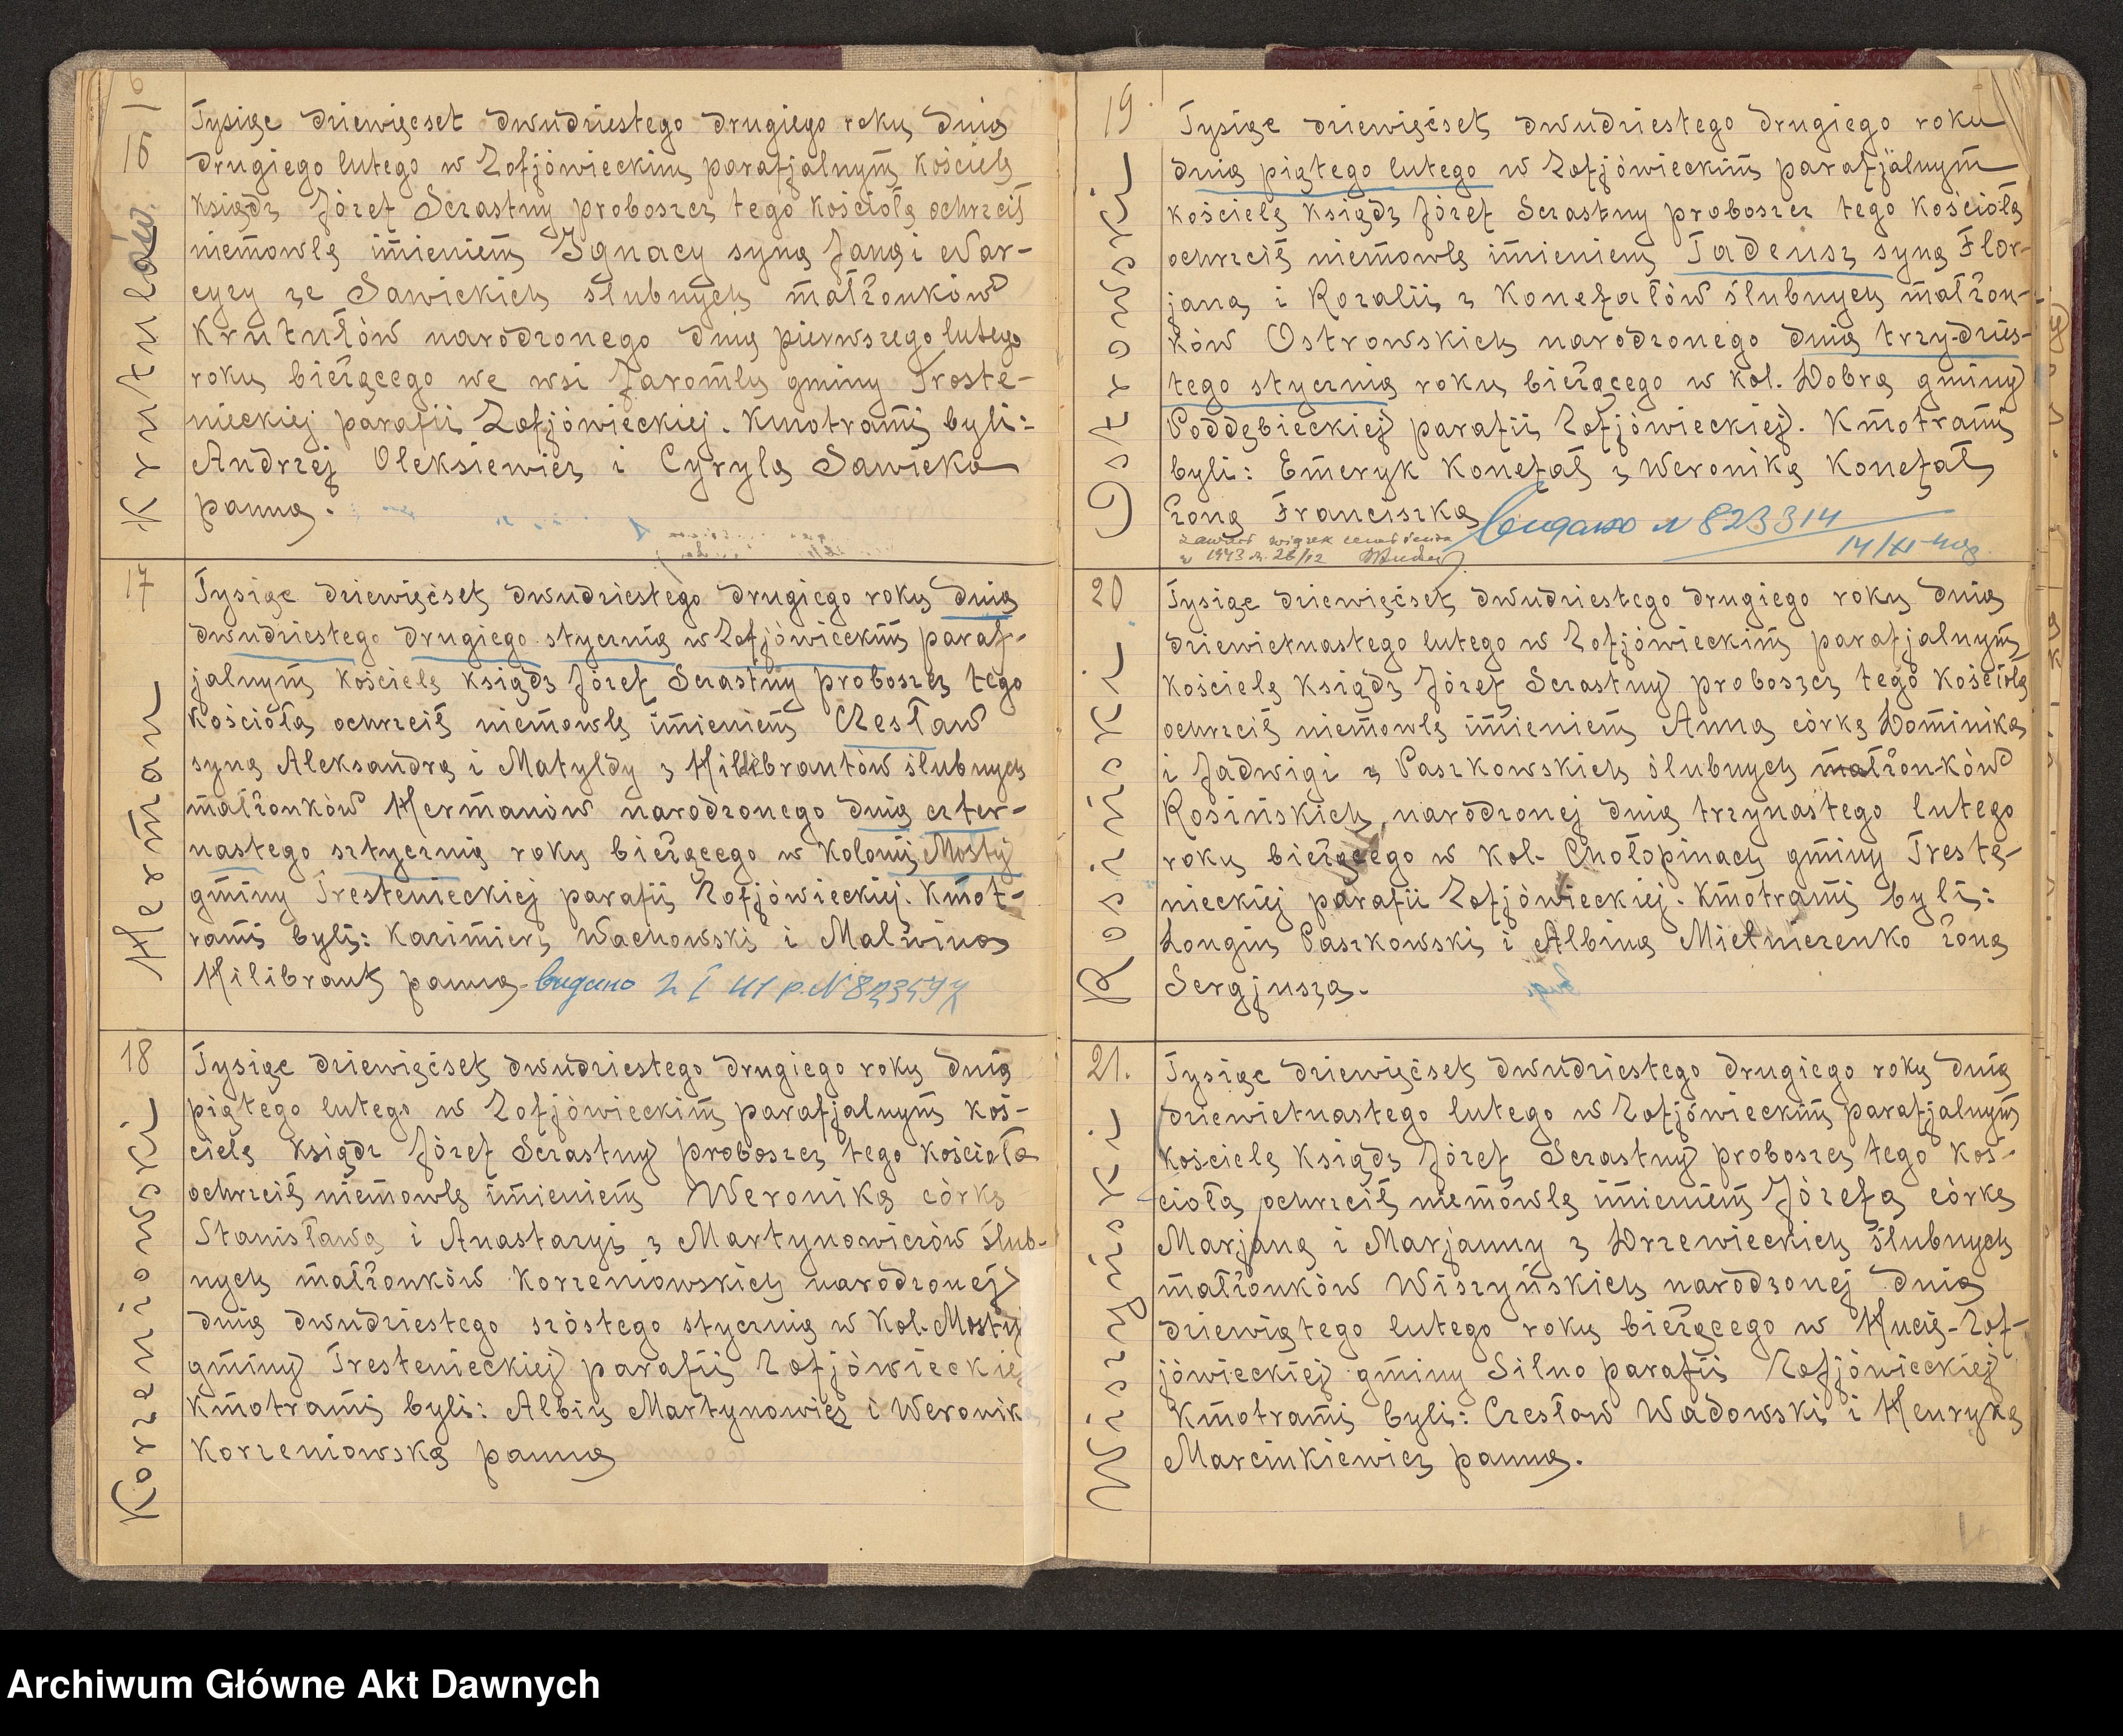 16
Krutulów
Tysiąc dziewięcset dwudziestego drugiego roku dnia
drugiego lutego w Zofjówieckim parafjalnym kościele
ksiądz Józef Szczastny proboszcz tego kościoła ochrzcił
niemowlę imieniem Ignacy syna Jana i Nar-
cyzy ze Sawickich ślubnych małżonków
Krutułów narodzonego dnia pierwszego lutego
roku bieżącego we wsi Jaromla gminy Troste-
nieckiej parafii Zofjówieckiej. Kmotrami byli:
Andrzej Oleksiewicz i Cyryla Sawicka
panna.
17
Herman
Tysiąc dziewięćset dwudziestego drugiego roku dnia
dwudziestego drugiego stycznia w Zofjówieckim paraf-
jalnym kościele ksiądz Józef Szczastny proboszcz tego
kościoła ochrzcił niemowlę imieniem Czesław
syna Aleksandra i Matyldy z Hilibrantów ślubnych
małżonków Hermanów narodzonego dnia czter-
nastego sztycznia roku bieżącego w Kolonii Mosty
gminy Trestenieckiej parafii Zofjówieckiej. Kmot-
rami byli: Kazimierz Wachowski i Malwina
Hilibrant panna.
18
Korzeniowski
Tysiąc dziewięćset dwudziestego drugiego roku dnia
piątego lutego w Zofjówieckim parafjalnym koś-
ciele ksiądz Józef Szczastny proboszcz tego kościoła
ochrzcił niemowlę imieniem Weronika córkę
Stanisława i Anastazyi z Martynowiczów ślub-
nych małżonków Korzeniowskich narodzonej
dnia dwudziestego szóstego stycznia w Kol. Mosty
gminy Trestenieckiej parafii Zofjówieckiej
Kmotrami byli: Albin Martynowicz i Weronika
Korzeniowska panna
19.
Ostrowski
Tysiąc dziewięćset dwudziestego drugiego roku
dnia piątego lutego w Zofjówieckim parafjalnym
kościele ksiądz Józef Szczastny proboszcz tego kościoła
ochrzcił niemowlę imieniem Tadeusz syna Flor-
jana i Rozalii z Konefałów ślubnych małżon-
ków Ostrowskich narodzonego dnia trzy-dzies-
tego stycznia roku bieżącego w kol. Dobra gminy
Poddębieckiej parafii Zofjówieckiej. Kmotrami
byli: Emeryk Konefał z Weroniką Konefał
żoną Franciszka
Выдано N 823314
14/XI
zawarł związek
w 1943 r. 26/12
20
Rosiński
Tysiąc dziewięćset dwudziestego drugiego roku dnia
dziewietnastego lutego w Zofjówieckim parafjalnym
kościele ksiądz Józef Szczastny proboszcz tego kościoła
ochrzcił niemowlę imieniem Anna córkę Dominika
i Jadwigi z Paszkowskich ślubnych małżonków
Rosińskich, narodzonej dnia trzynastego lutego
roku bieżącego w kol. Chołopinach gminy Treste-
nieckiej parafii Zofjówieckiej. Kmotrami byli:
Longin Paszkowski i Albina Mielniczenko żona
Sergjusza.
21.
Wiszyński
Tysiąc dziewięćset dwudziestego drugiego roku dnia
dziewietnastego lutego w Zofjówieckim parafjalnym
kościele ksiądz Józef Szczastny proboszcz tego koś-
cioła ochrzcił niemowlę imieniem Józefa córkę
Marjana i Marjanny z Drzewieckich ślubnych
małżonków Wiszyńskich narodzonej dnia
dziewiątego lutego roku bieżącego w Hucie-Zof-
jówieckiej gminy Silno parafii Zofjówieckiej
Kmotrami byli: Czesław Wadowski i Henryka
Marcinkiewicz panna.
Archiwum Główne Akt Dawnych